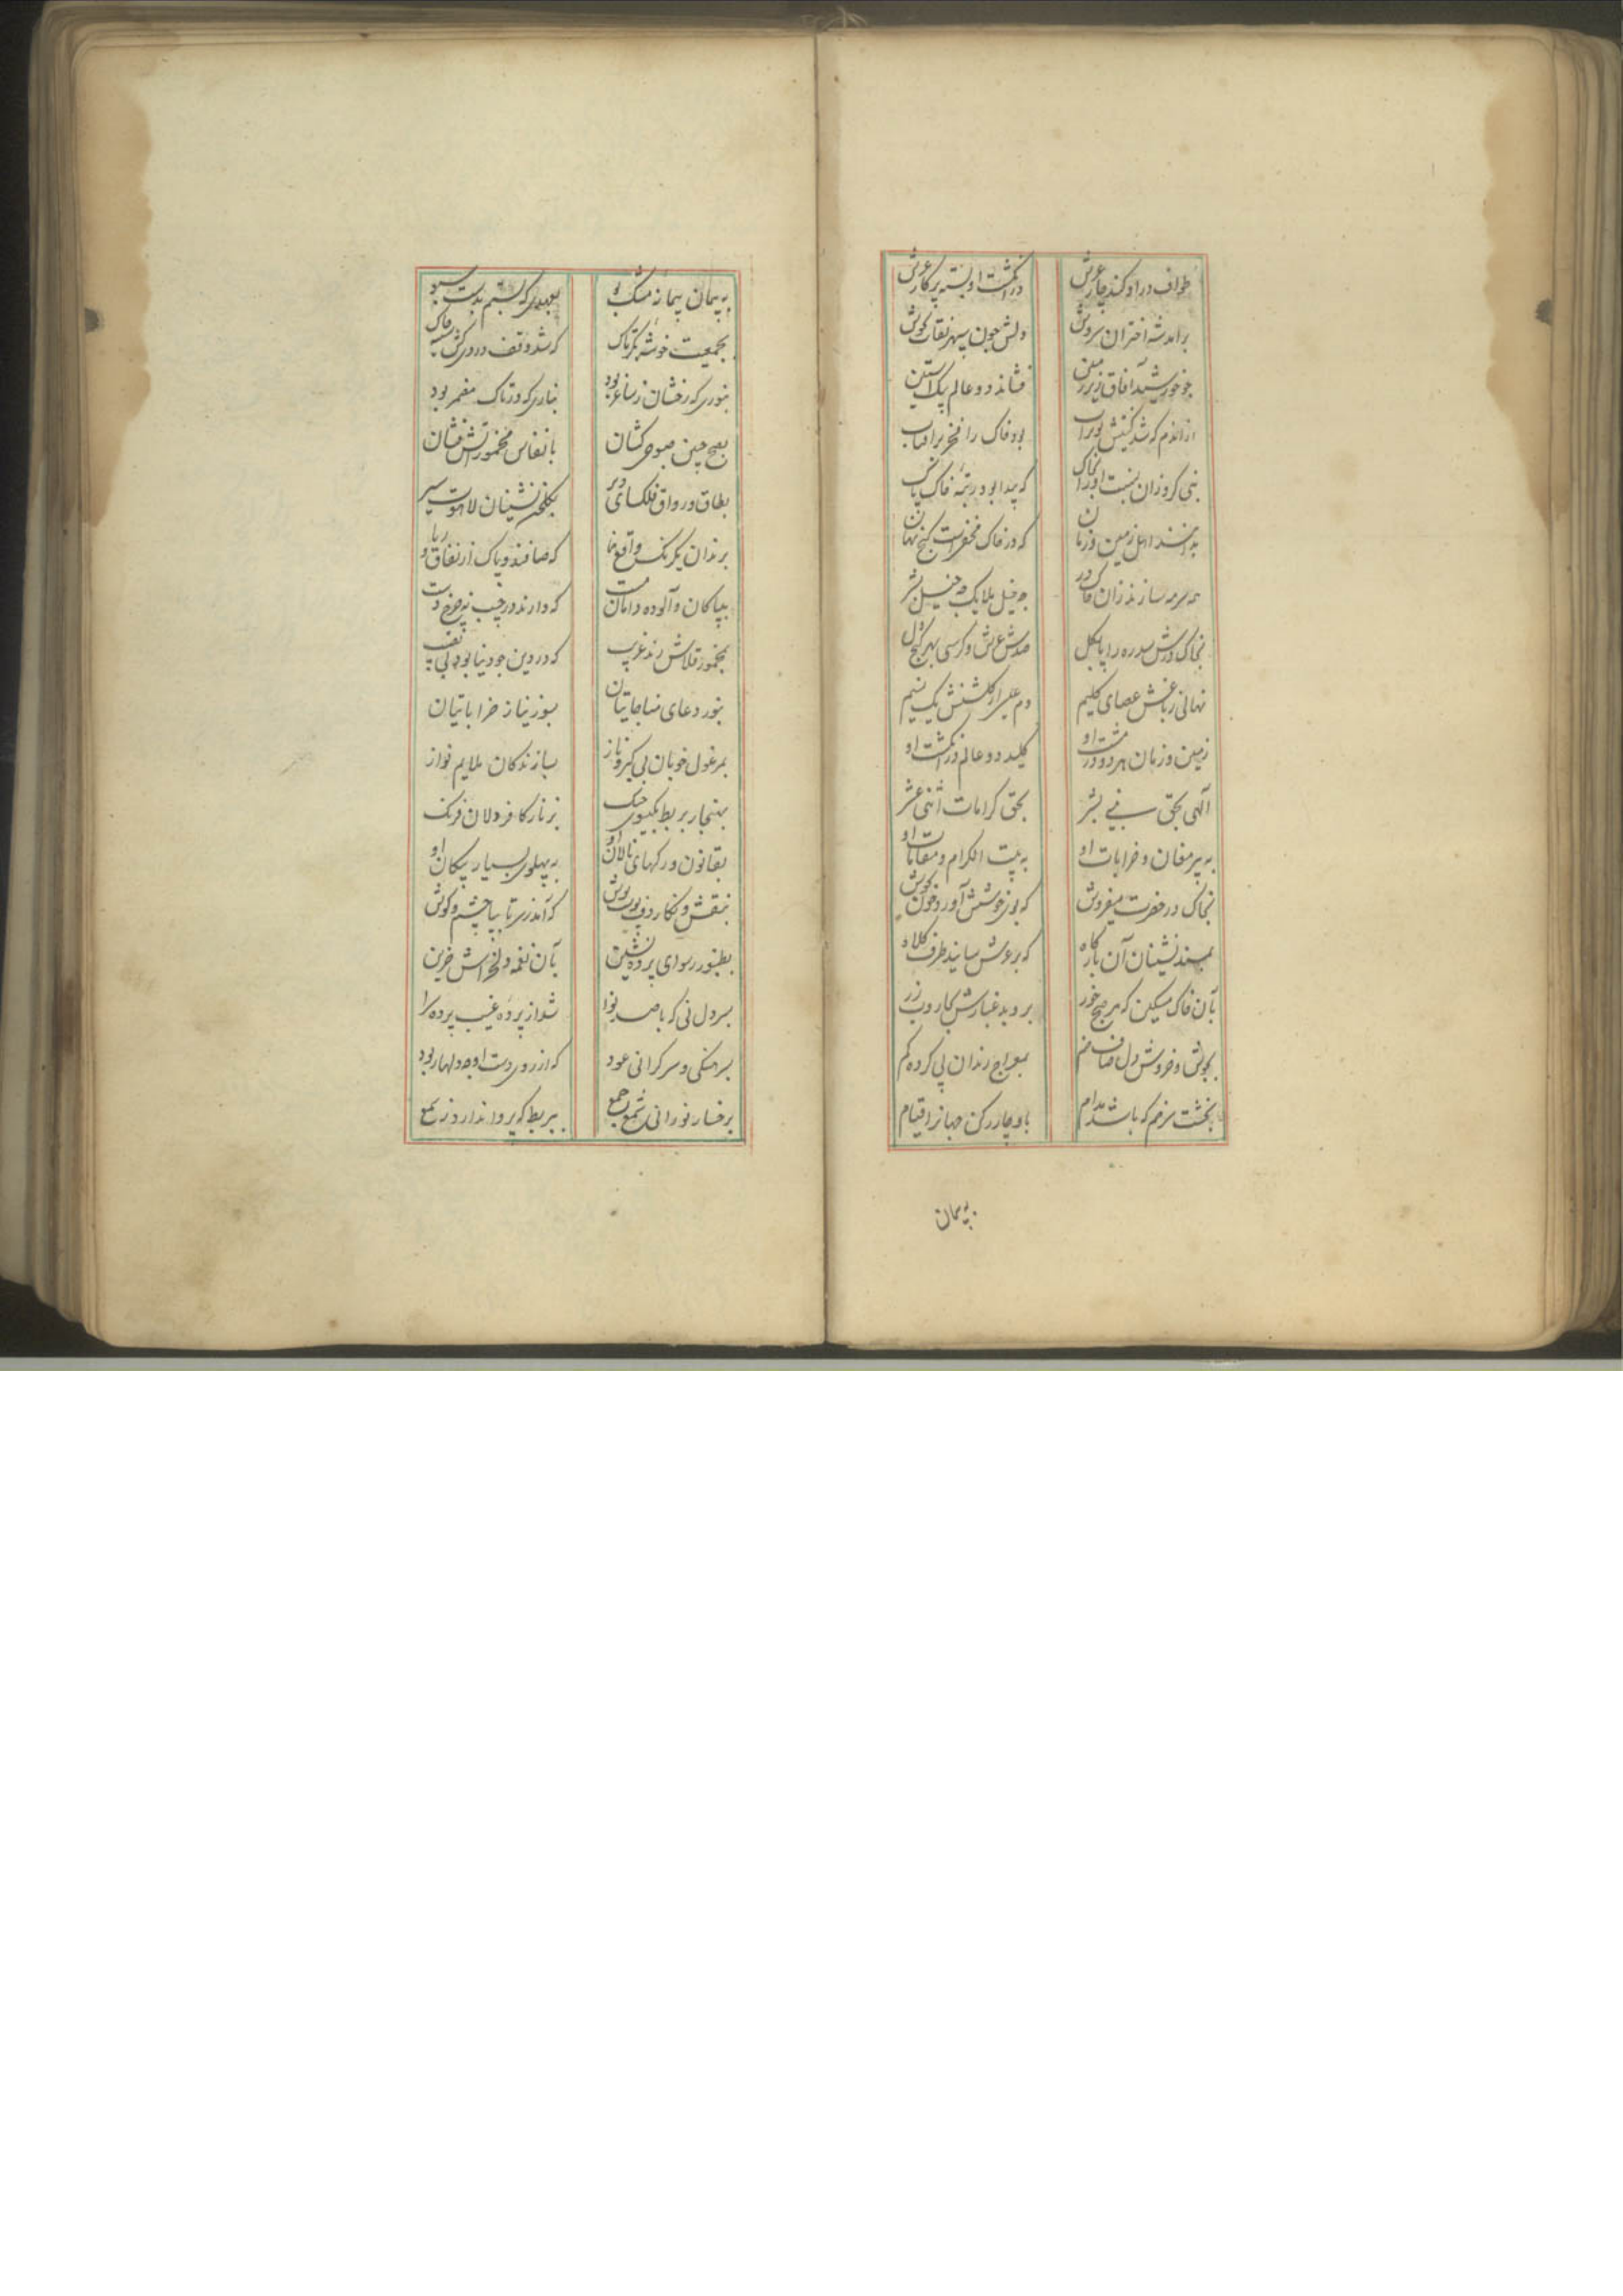 طواف در او کند چار عرش
در انگشت او بسته پرکار عرش
برآمد شه اختران
دلش چون سپهر
چو خورشید آفاق زیر زمین
فشاند دو عالم یک آستین
از اندم که شد
بود خاک را فخر بر آفتاب
نبی کرد زان نسبت او را بخاک
که پیدا بود رتبه خاک پاک
بدانند اهل زمین و زمان
که در خاک مخفی است گنج نهان
همه سرمه سازند زان خاک در
چه خیل ملایک چه خیل بشر
بخاک درش سدره را پا بگل
صدش عرش و کرسی بهر کنج دل
نهانی ز باغش عصای کلیم
دم عیسی از گلشنش یک نسیم
زمین و زمان هر دو در مشت او
کلید دو عالم در انگشت او
الهی بحق نبی بشر
بحق کرامات اثنی عشر
به پیر مغان و خرابات او
به بیت الکرام و مقامات او
بخاک در حضرت میفروش
که بوی خوشش آورد خون بجوش
بمسند نشینان آن بارگاه
که بر عرش سایند طرف کلاه
بآن خاک مسکین که هر صبح خور
بروبد غبارش بجاروب زر
بجوش و خروش دل صاف خم
بمعراج رندان پی کرده گم
بخشت سر خم که باشد مدام
باو چار رکن جهانرا قیام
به پیمان
به پیمان پیمانه مشک بو
بعهدی که بستم بدست سبو
بجمعیت خوشه بکر تاک
که شد وقف دردی کش
بنوری که رخشان ز ساغر بود
بناری که در تاک مضمر بود
بصبح جبین صبوحی کشان
بانفاس مخمور آتش فشان
بطاق و رواق فلکسای دیر
بگلخن نشینان لاهوت سیر
برندان یکرنگ واقع نما
که صافند و پاک از نفاق و ریا
بپاکان و آلوده دامان مست
که دارند در جیب نه چرخ دست
بمخمور قلاش رند غریب
که در دین چو دنیا بود بی نصیب
بنور دعای مناجاتیان
بسوز نیاز خراباتیان
بمرغول خوبان بی کبر و ناز
بسازندگان ملایم نواز
بهنجار بربط بگیسوی چنگ
بزنار کافر دلان فرنگ
بقانون و رگهای نالان او
به پهلوی بسیار پیکان او
بنقش و نگار دف پوست پوش
که آمد ز سر تا بپا چشم و گوش
بطنبور رسوای پرده نشین
بآن نغمه دلخراش حزین
بسرد دل نی که با صد نوا
شد از پرده غیب پرده سرا
بسرهنگی و سر گرانی عود
که از روی دست او چه دلها ربود
برخسار نورانی شمع جمع
ببربط که پروا ندارد ز شمع